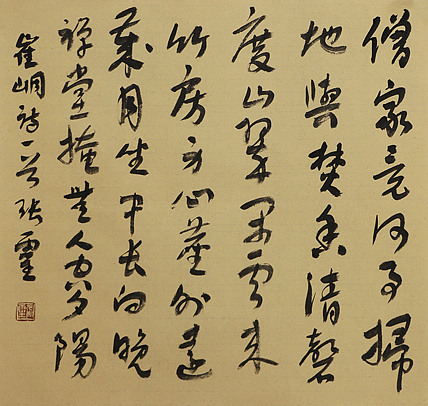 僧家竟何事掃
地與焚香清磬
度山翠閑雲来
竹房身心塵外遠
歲月坐中長向晚
禪堂掩無人空夕陽
崔峒詩一首張